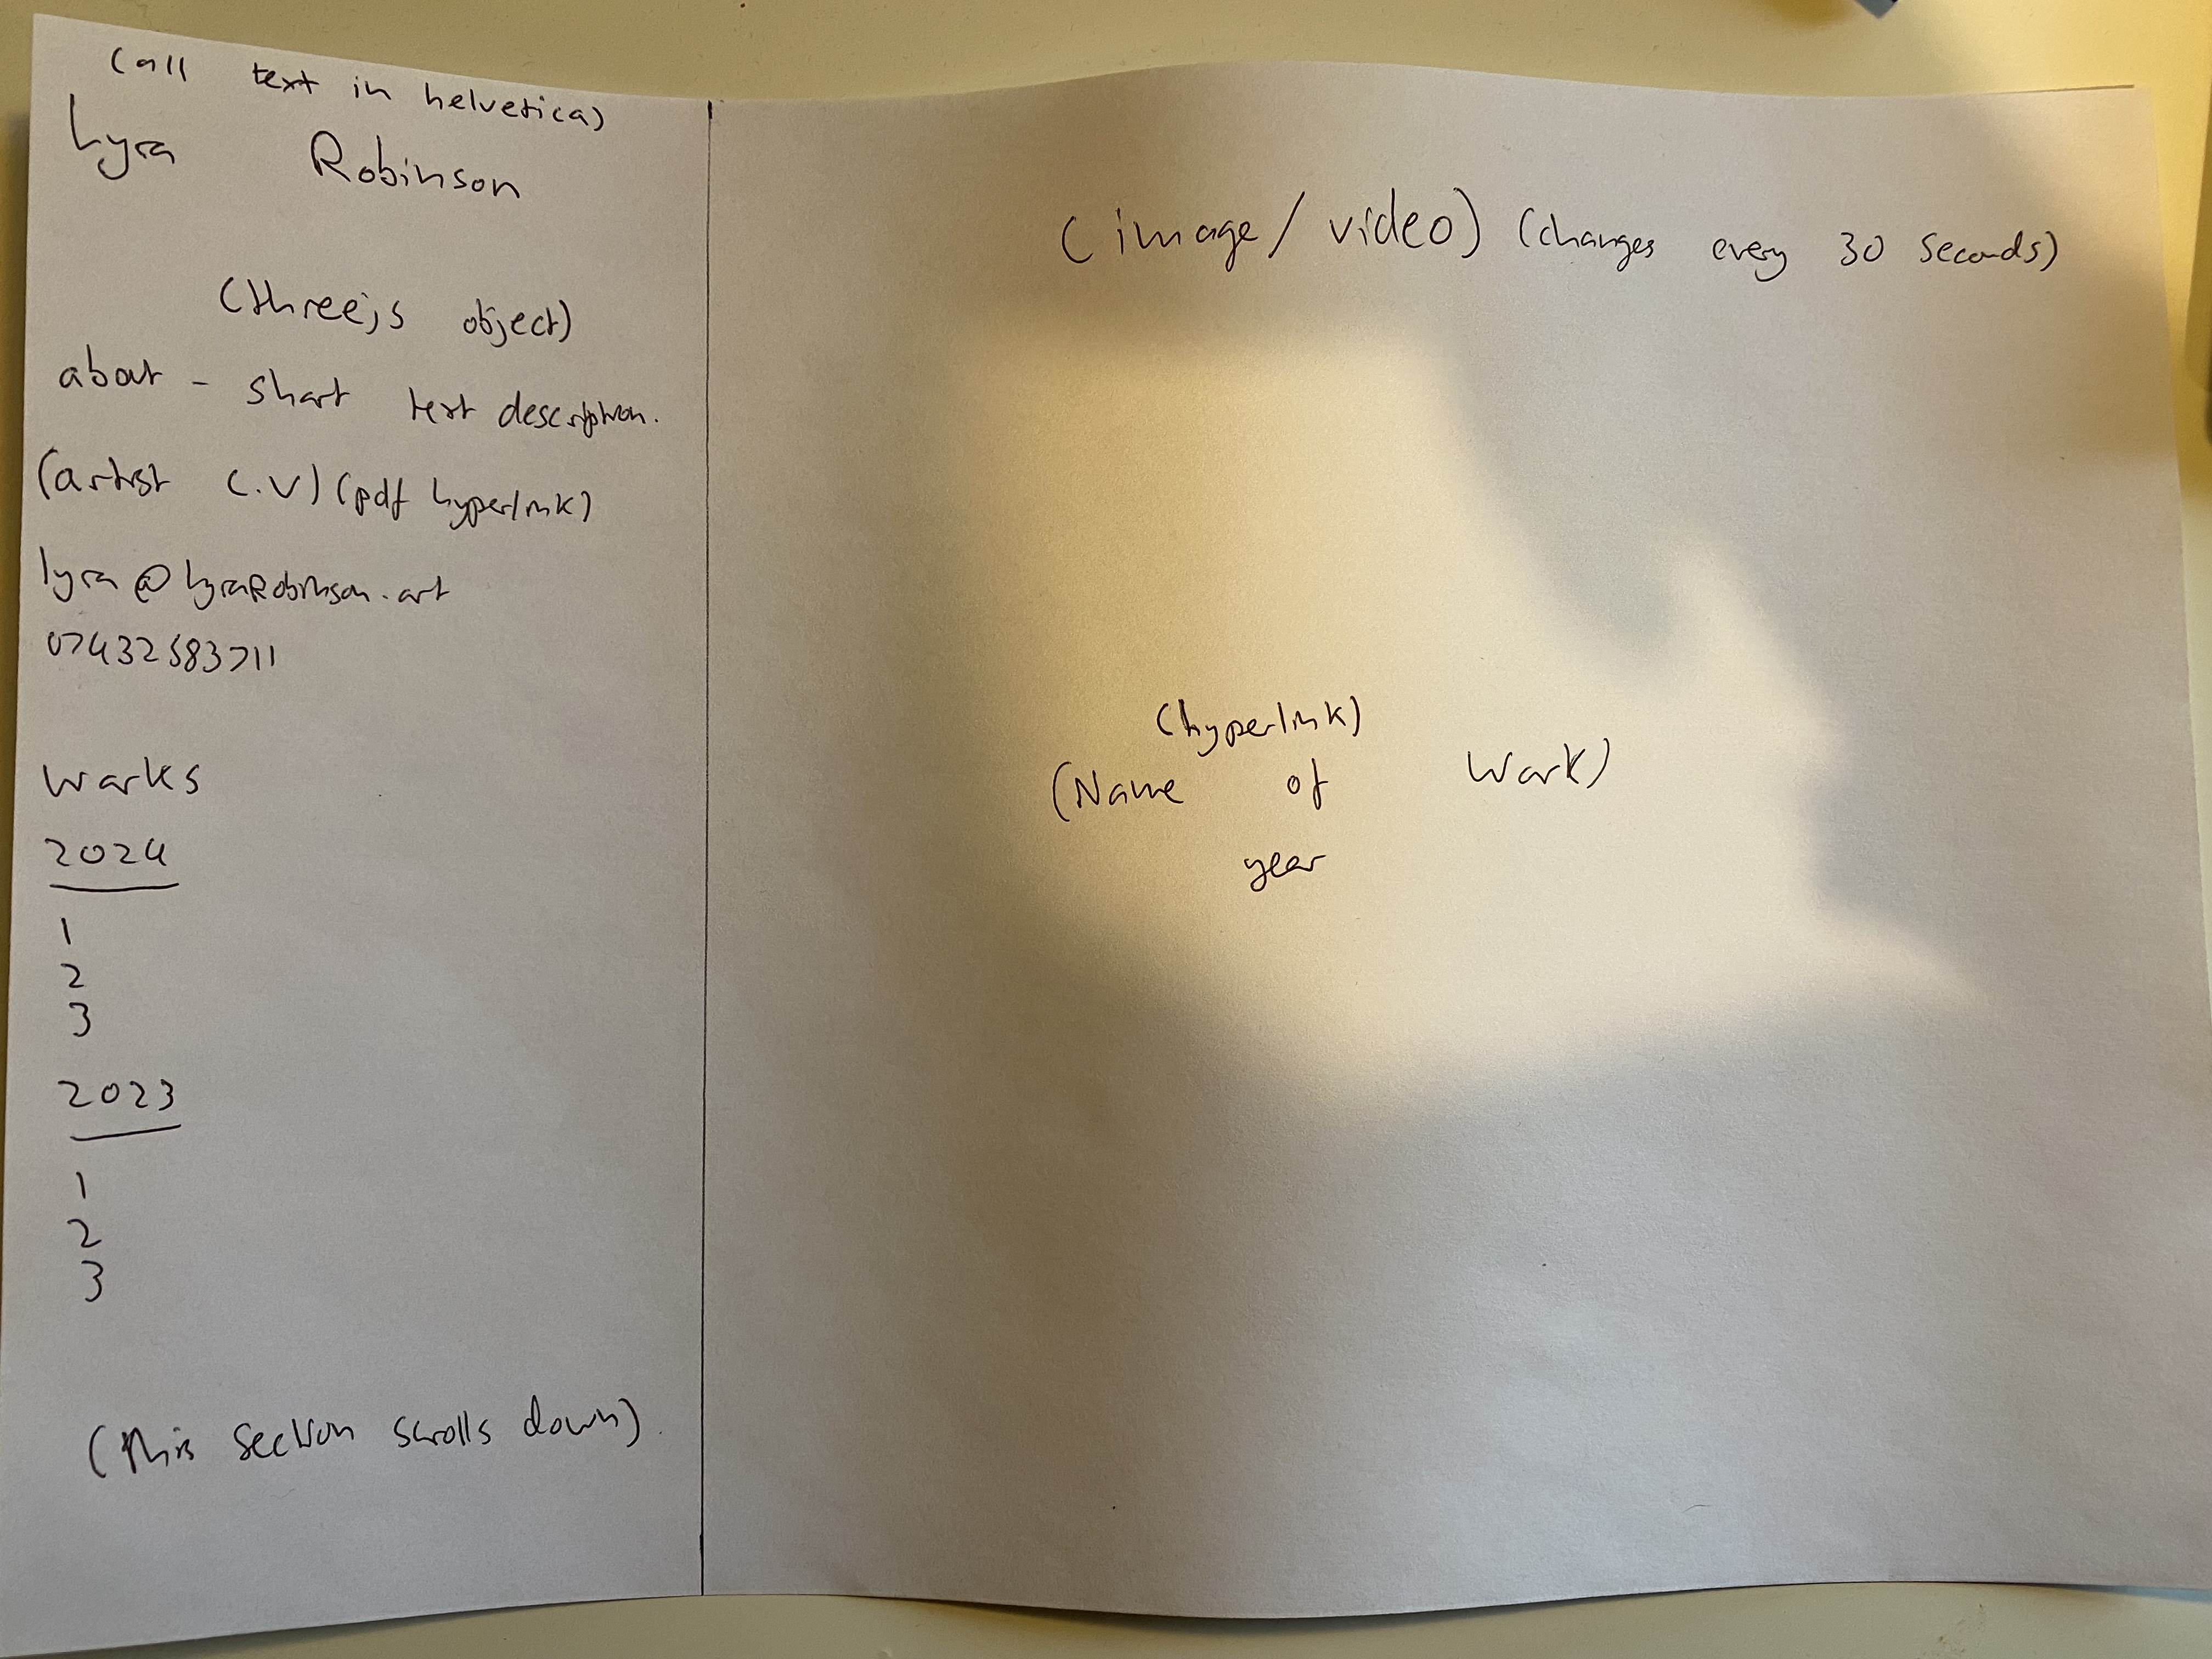 (all text in helvetica)
Lyra Robinson
(threejs object)
about - short text description.
(artist C.V) (pdf hyperlink)
lyra@lyraRobinson.art
07432583711
Works
2024
1
2
3
2023
1
2
3
(this section scrolls down)
(image/video) (changes every 30 seconds)
(hyperlink)
(Name of Work)
year